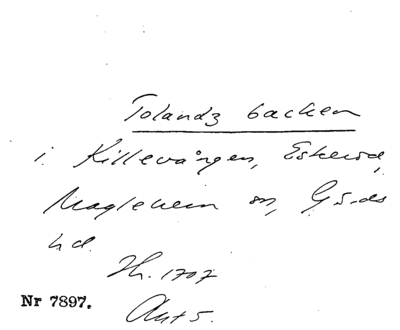 Tolandz backen
i. Killevången, Eskerod,
Maglehem sn, Gärds
hd.
Hr. 1707
Akt 5.
Nr 7897.